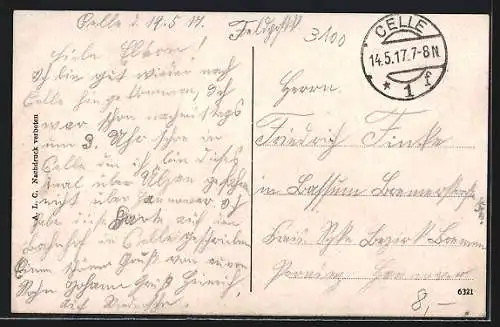 Celle d. 14.5.17.
Feldpost
3100
CELLE
14.5.17.7-8N
* * 1 f
Liebe Eltern!
Ich bin gut wieder nach
Celle hingekommen, Ich
war schon nachmittags
um 3 Uhr schon in
Celle den ich bin dieses
mal über Ülzen gefahren
nicht über Hannover. Ich
habe diese Karte auf den
Bahnhof in Celle geschrieben
Einen schönen Gruß von euren
Sohn Johann Gruß Hinrich
auf
A. L. C. Nachdruck verboten
Herrn.
Friedrich Finke
in Bassum Bremerstr.
Kreis Syke Bezirk Bremen
Provinz Hannover
6321
8,-